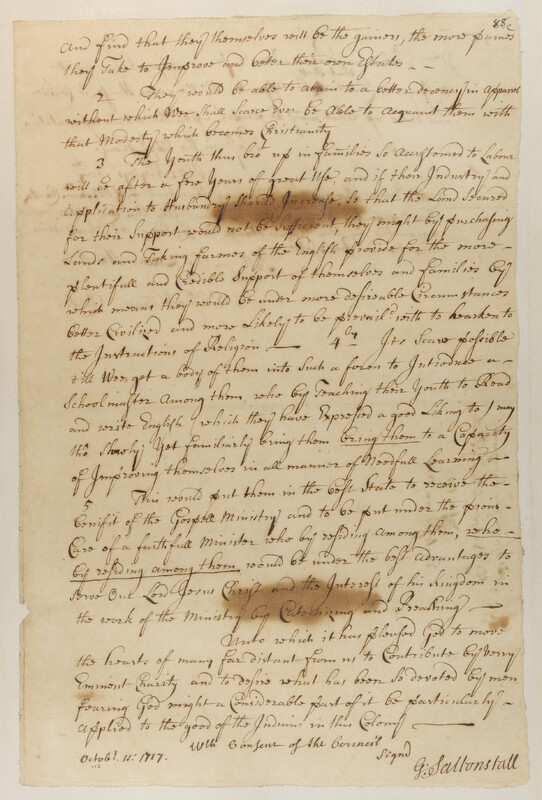 88c
and find that they themselves will be the gainers, the more paines
they Take to Improve and better their own Estates --
2 They would be able to attain to a better decency in Apparel
without which Wee Shall Scarce Ever be Able to Acquaint them with
that Modesty which becomes Christianity
3 The Youth thus bro't up in families So Accustomed to Labour
will be after a few Years of great Use and if their Industry and
Application to Husbandry Should Increase, So that the Land Secured
for their Support would not be Sufficient, they might by purchasing
Lands and Taking farmes of the English provide for the more
plentifull and Credible Support of themselves and families by
which means they would be under more desireable Circumstances
better Civilized and more Likely to be prevail'd with to hearken to
the Instructions of Religion — 4ly Its Scarce possible
till Wee get a body of them into Such a form to Introduce a
Schoolmaster Among them, who by Teaching their Youth to Read
and write English (which they have Expressed a good Liking to) may
tho' Slowly Yet familiarly bring them bring them to a Capacity
of Improving themselves in all manner of Needfull Learning —
5 This would put them in the best State to receive the
benifit of the Gospell Ministry and to be put under the pious
Care of a faithfull Minister who by residing Among them, who
by residing among them, would be under the best advantages to
Serve Our Lord Jesus Christ and the Interest of his Kingdom in
the work of the Ministry by Catechizing and Preaching —
Unto which it has pleased God to move
the hearts of many far distant from us to Contribute by Very
Eminent Charity and to desire what has been So devoted by men
fearing God might a Considerable part of it be particularly
Applied to the good of the Indians in this Colony —
Octobr. 11: 1717. With Consent of the Council
Signd
G: Saltonstall